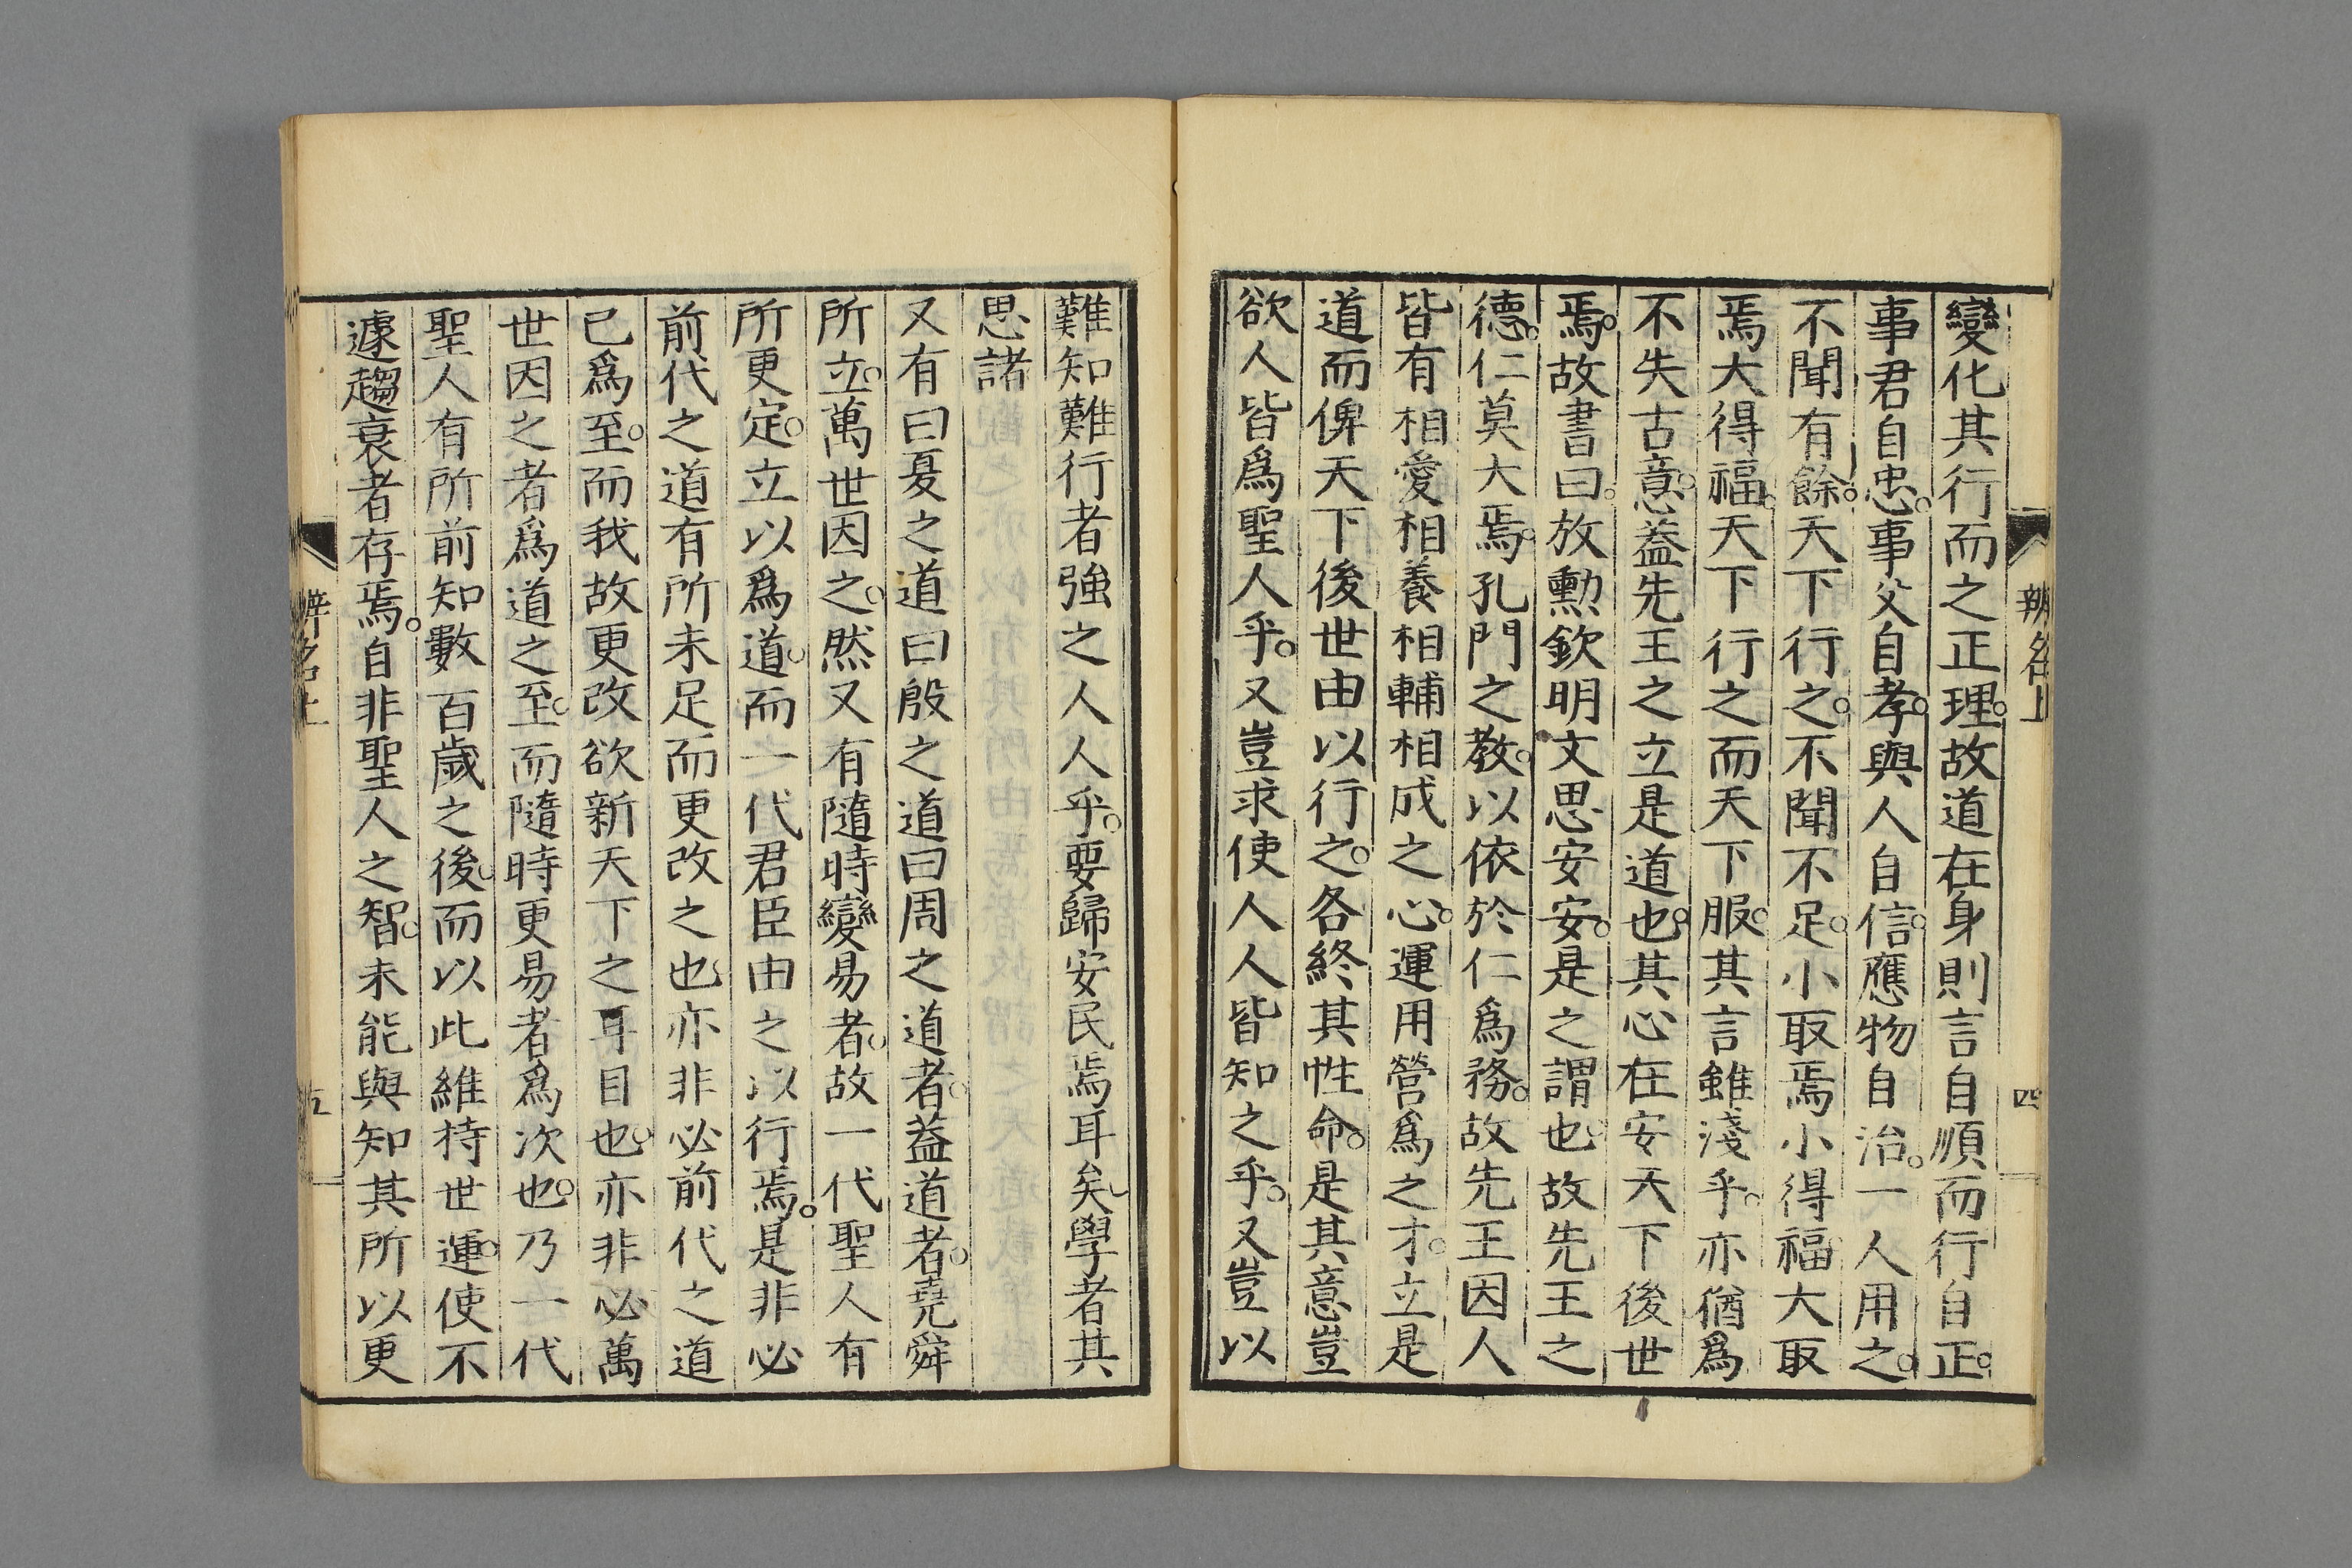 辨名上
四
變化其行而之正理。故道在身則言自順而行自正。
事君自忠。事父自孝。與人自信。應物自治。一人用之。
不聞有餘。天下行之。不聞不足。小取焉小得福大取
焉大得福。天下行之而天下服。其言雖淺乎。亦猶爲
不失古意。葢先王之立是道也。其心在安天下後世
焉。故書曰。放勲欽明文思安安。是之謂也。故先王之
德。仁莫大焉。孔門之教。以依於仁爲務。故先王因人
皆有相愛相養相輔相成之心。運用營爲之才。立是
道而俾天下後世由以行之。各終其性命。是其意豈
欲人皆爲聖人乎。又豈求使人人皆知之乎。又豈以
難知難行者強之人人乎。要歸安民焉耳矣。學者其
思諸
又有曰夏之道曰殷之道曰周之道者。葢道者。堯舜
所立。萬世因之。然又有隨時變易者。故一代聖人有
所更定。立以爲道。而一代君臣由之以行焉。是非必
前代之道有所未足而更改之也。亦非必前代之道
已爲至。而我故更改欲新天下之耳目也。亦非必萬
世因之者爲道之至。而隨時更易者爲次也。乃一代
聖人有所前知數百歲之後。而以此維持世運。使不
遽趨衰者存焉。自非聖人之智。未能與知其所以更
辨名上
五